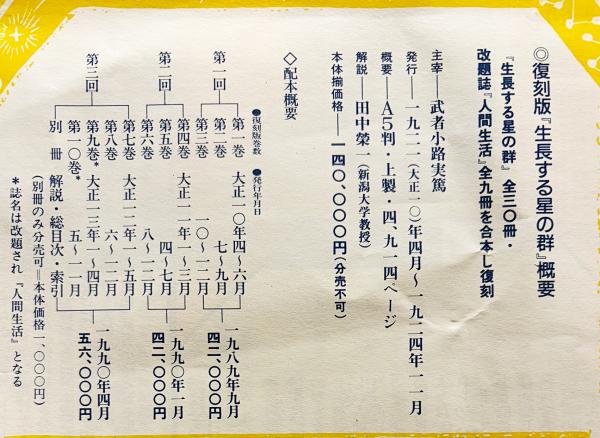 ◎復刻版『生長する星の群』概要
『生長する星の群』全三〇冊・
改題誌『人間生活』全九冊を合本し復刻
主宰――武者小路実篤
発行――一九二一(大正一〇)年四月〜一九二四年一一月
概要――A5判・上製・四、九一四ページ
解説――田中榮一(新潟大学教授)
本体揃価格――一四〇、〇〇〇円(分売不可)
◇配本概要
●復刻版巻数 ●発行年月日
第一回 第一巻 大正一〇年四〜六月
第二巻 七〜九月
第三巻 一〇〜一二月
一九八九年九月
四二、〇〇〇円
第二回 第四巻 大正一一年一〜三月
第五巻 四〜七月
第六巻 八〜一二月
一九九〇年一月
四二、〇〇〇円
第三回 第七巻 大正一二年一〜五月
第八巻 六〜一二月
第九巻* 大正一三年一〜四月
第一〇巻* 五〜一一月
別冊 解説・総目次・索引
一九九〇年四月
五六、〇〇〇円
(別冊のみ分売可=本体価格一、〇〇〇円)
*誌名は改題され『人間生活』となる